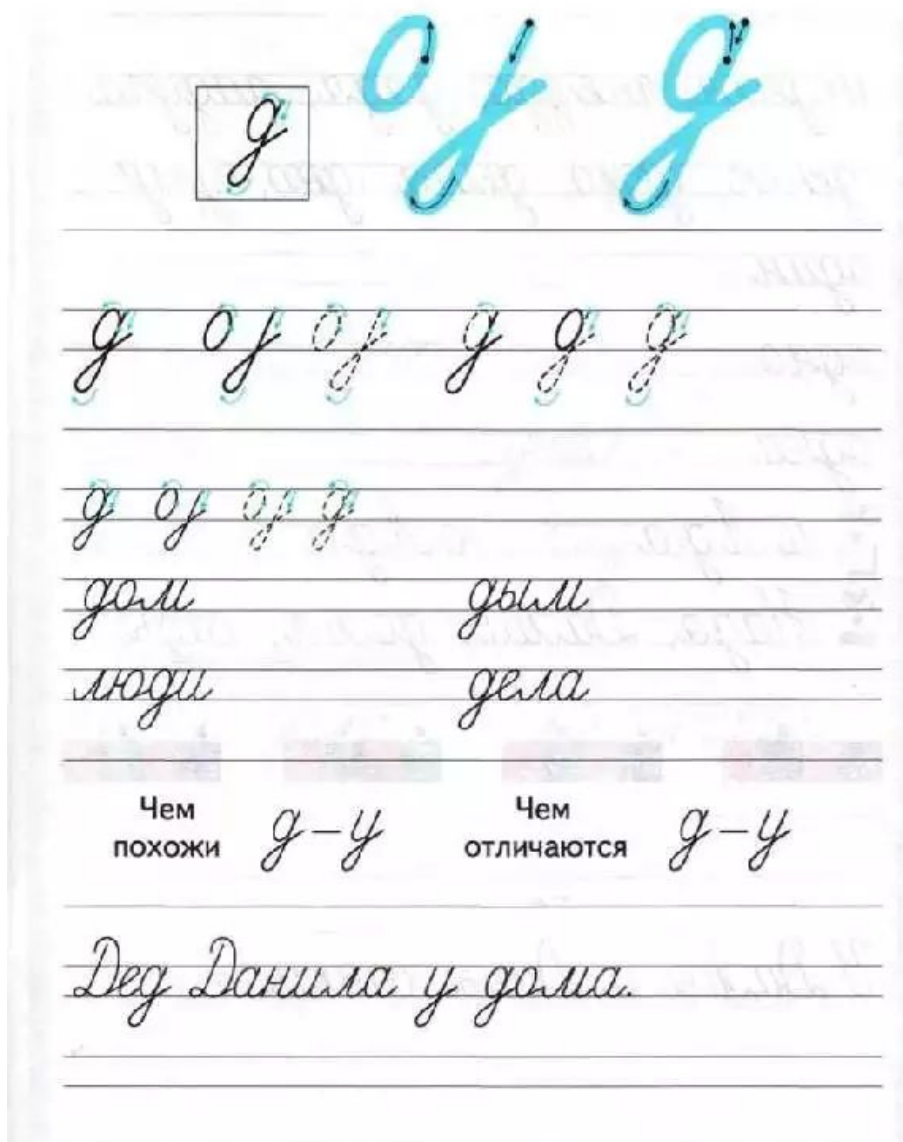 д
д д д д
д д
дом дым
люди дела
Чем похожи д – у Чем отличаются д – у
Дед Данила у дома.